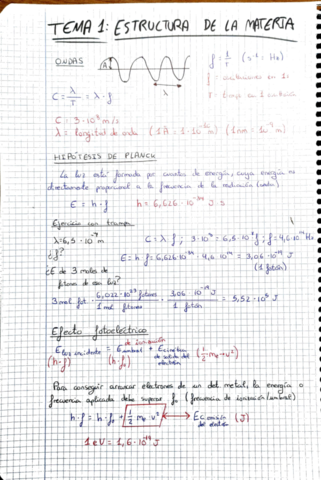 TEMA 1: ESTRUCTURA DE LA MATERIA
ONDAS
A
λ
f = 1/T (s⁻¹ = Hz)
C = λ/T = λ · f
C = 3 · 10⁸ m/s
λ = longitud de onda (1Å = 1 · 10⁻¹⁰ m) (1 nm = 10⁻⁹ m)
HIPÓTESIS DE PLANCK
La luz está formada por cuantos de energía, cuya energía es
directamente proporcional a la frecuencia de la radiación (onda)
E = h · f h = 6,626 · 10⁻³⁴ J s
Ejercicio con trampa
λ = 6,5 · 10⁻⁷ C = λ · f ; 3 · 10⁸ = 6,5 · 10⁻⁷ f ; f = 4,6 · 10¹⁴ Hz
¿f? E = h · f = 6,626 · 10⁻³⁴ · 4,6 · 10¹⁴ = 3,06 · 10⁻¹⁹ J
(1 fotón)
¿E de 3 moles de
fotones de esa luz?
3 mol fot · 6,022 · 10²³ fotones / 1 mol fotones · 3,06 · 10⁻¹⁹ J / 1 fotón = 5,52 · 10⁵ J
Efecto fotoeléctrico
de ionización
E luz incidente = E umbral + E cinética de salida del electrón (½ mₑ · v²)
(h · f) (h · f₀)
Para conseguir arrancar electrones de un del metal, la energía o
frecuencia aplicada debe superar f₀ (frecuencia de ionización/umbral)
h · f = h · f₀ + ½ mₑ v² E cinética del electrón (J)
1 eV = 1,6 · 10⁻¹⁹ J